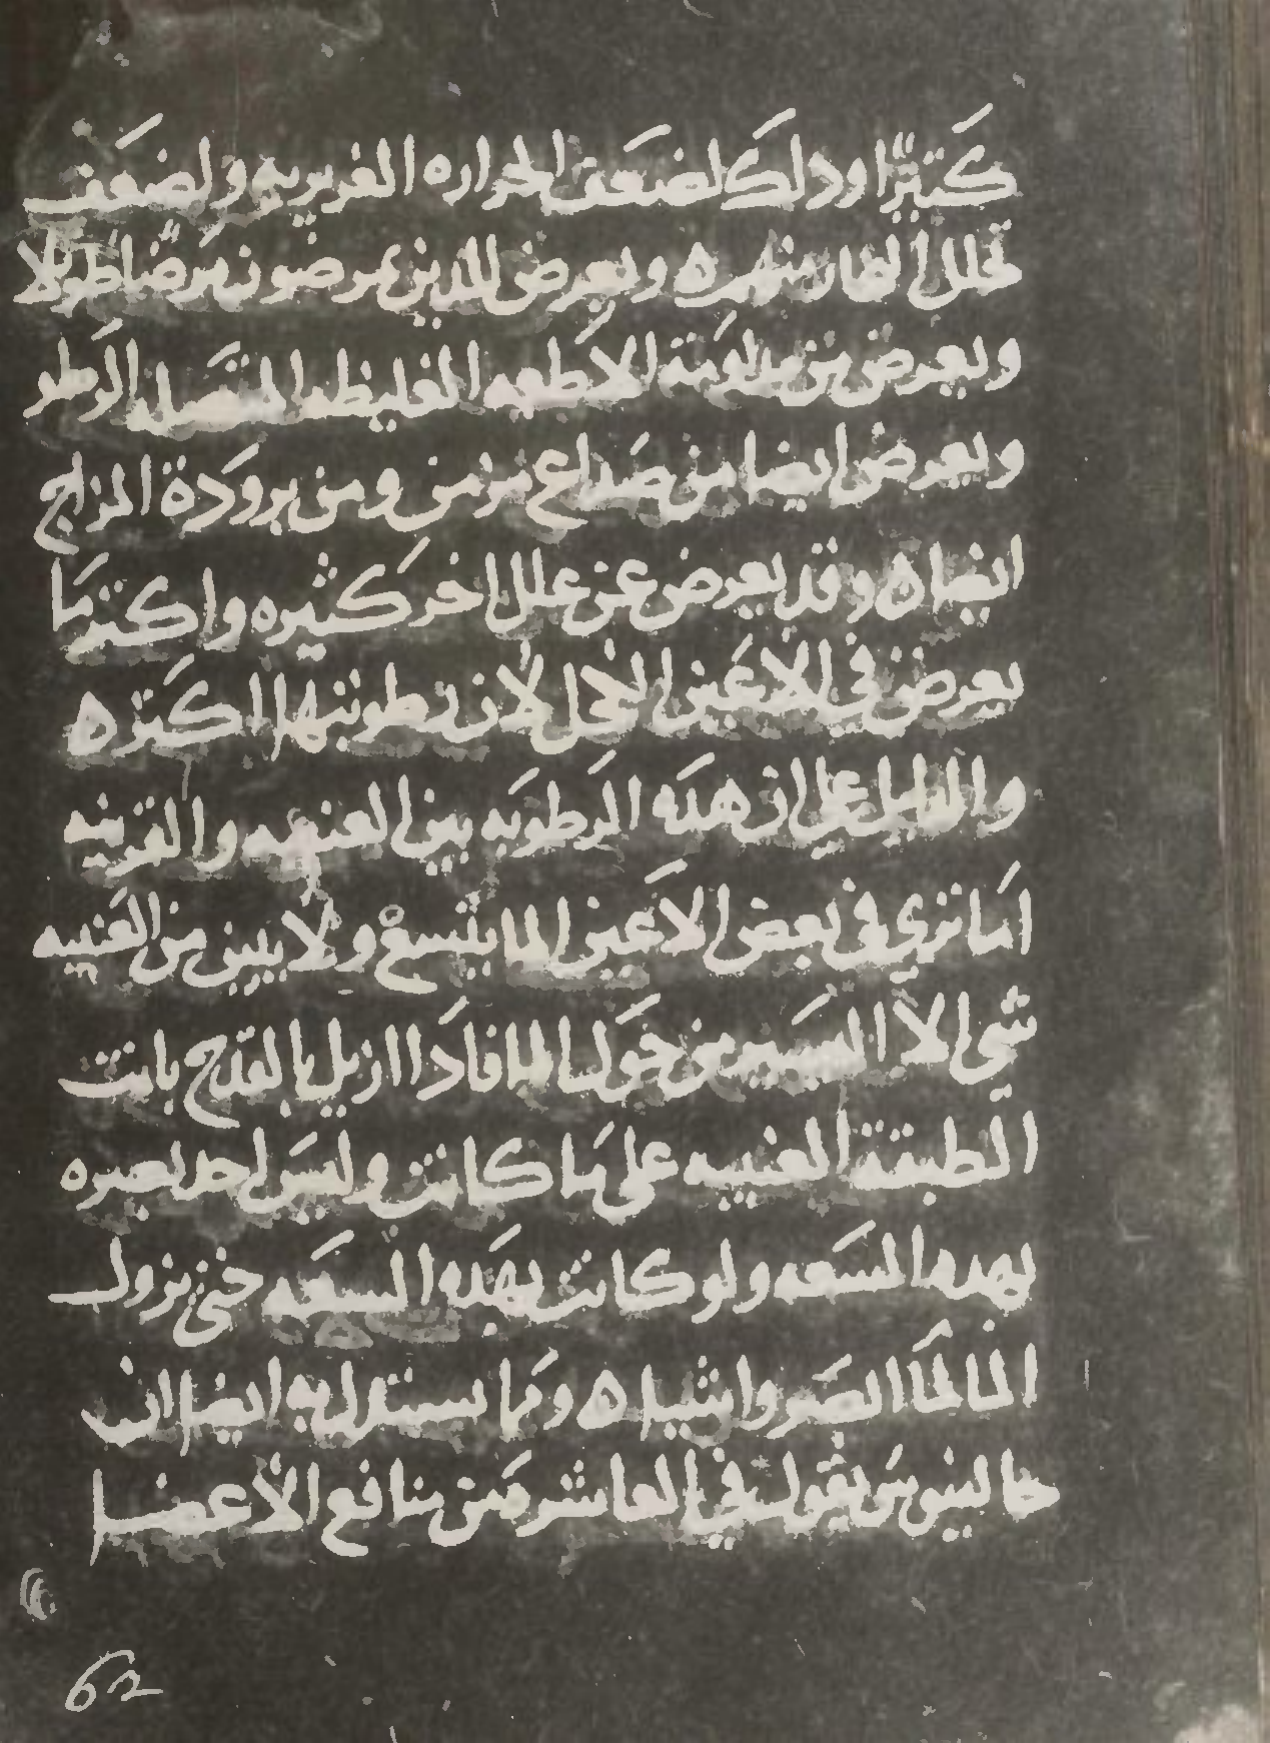 كثيرًا وذلك لضعف الحراره الغريزيه ولضعف
تحلل البخار منهم ه ويعرض للذين يمرضون مرضًا طويلا
ويعرض من مداومة الاطعمه الغليظه الرطو
ويعرض ايضا من صداع مزمن ومن برودة المزاج
ايضا ه وقد يعرض عن علل اخر كثيره واكثر ما
يعرض في الاعين الكحل لان رطوبتها اكثر ه
والدليل علي ان هذه الرطوبه بين العنبيه والقرنيه
اما نري في بعض الاعين الما يتسع ولا يبين من العنبيه
شي الا اليسير من حول الما فاذا ازيل بالقدح بانت
الطبقة العنبيه على ما كانت وليس احد يبصره
بهذه السعه ولو كانت بهذه السعه حتى يزول
الما لما ابصر واشيا ه ومما يستدل به ايضا ان
جالينوس يقول في العاشره من منافع الاعضا
62